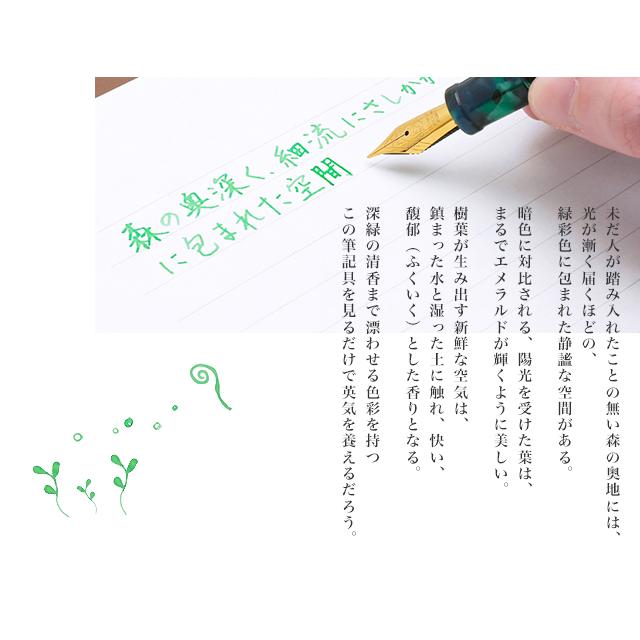 森の奥深く、細流にさしかか
に包まれた空間
未だ人が踏み入れたことの無い森の奥地には、
光が漸く届くほどの、
緑彩色に包まれた静謐な空間がある。
暗色に対比される、陽光を受けた葉は、
まるでエメラルドが輝くように美しい。
樹葉が生み出す新鮮な空気は、
鎮まった水と湿った土に触れ、快い、
馥郁（ふくいく）とした香りとなる。
深緑の清香まで漂わせる色彩を持つ
この筆記具を見るだけで英気を養えるだろう。